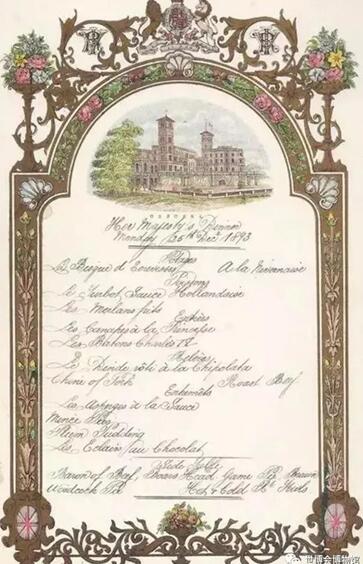 OSBORNE
Her Majesty's Dinner
Monday 25th Dec 1893
Potages
La Bisque d'Ecrevisses A la Nivernaise
Poissons
Le Turbot Sauce Hollandaise
Les Merlans frits
Entrées
Les Canapés à la Princesse
Les
Relevés
La Dinde rôti à la Chipolata
Chine of Pork Roast Beef
Entremêts
Les Asperges à la Sauce
Mince Pies
Plum Pudding
Les Eclairs au Chocolat
Side Table
Baron of Beef, Boars Head Game Pie Brawn
Woodcock Pie Hot & Cold Fowls
世博会博物馆